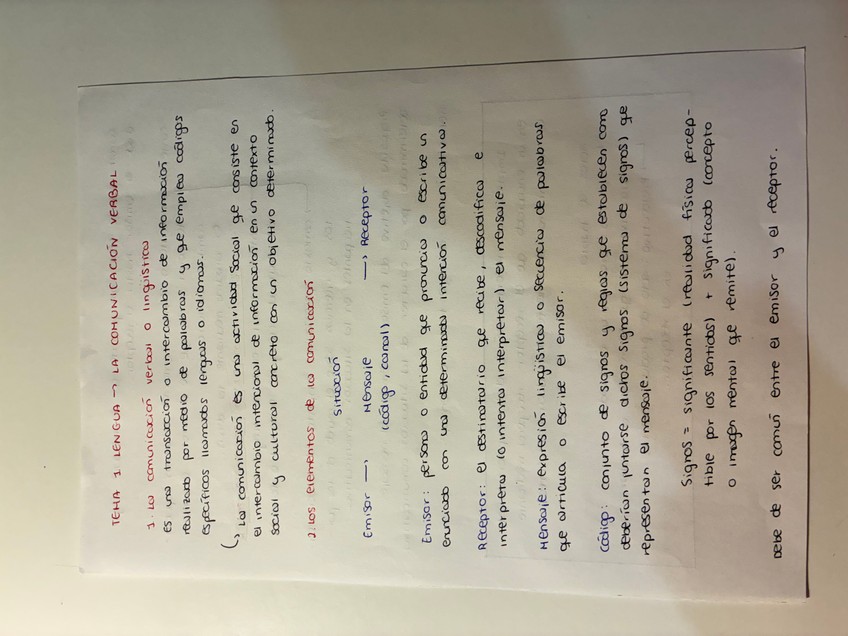 TEMA 1 LENGUA → LA COMUNICACIÓN VERBAL
1. La comunicación verbal o lingüística
Es una transacción o intercambio de información
realizado por medio de palabras y qe emplea códigos
específicos llamados lenguas o idiomas.
↳ La comunicación es una actividad social qe consiste en
el intercambio intencional de información en un contexto
social y cultural concreto con un objetivo determinado.
2. Los elementos de la comunicación
Situación
Emisor → Mensaje → Receptor
(código, canal)
Emisor: persona o entidad qe pronuncia o escribe un
enunciado con una determinada intención comunicativa.
Receptor: el destinatario qe recibe, descodifica e
interpreta (o intenta interpretar) el mensaje.
Mensaje: expresión lingüística o secuencia de palabras
qe articula o escribe el emisor.
Código: conjunto de signos y reglas qe establecen como
deberían juntarse dichos signos (sistema de signos) qe
representan el mensaje.
Signos = significante (realidad física percep-
tible por los sentidos) + significado (concepto
o imagen mental qe remite).
Debe de ser común entre el emisor y el receptor.